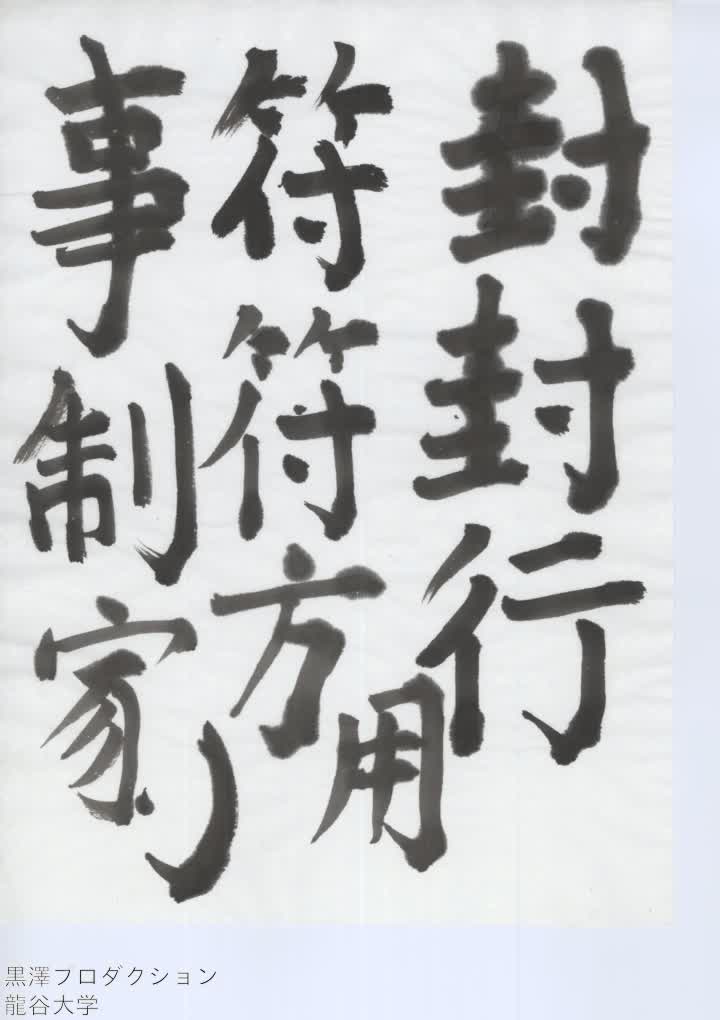 封封行
符符方用
事制家
黒澤プロダクション
龍谷大学